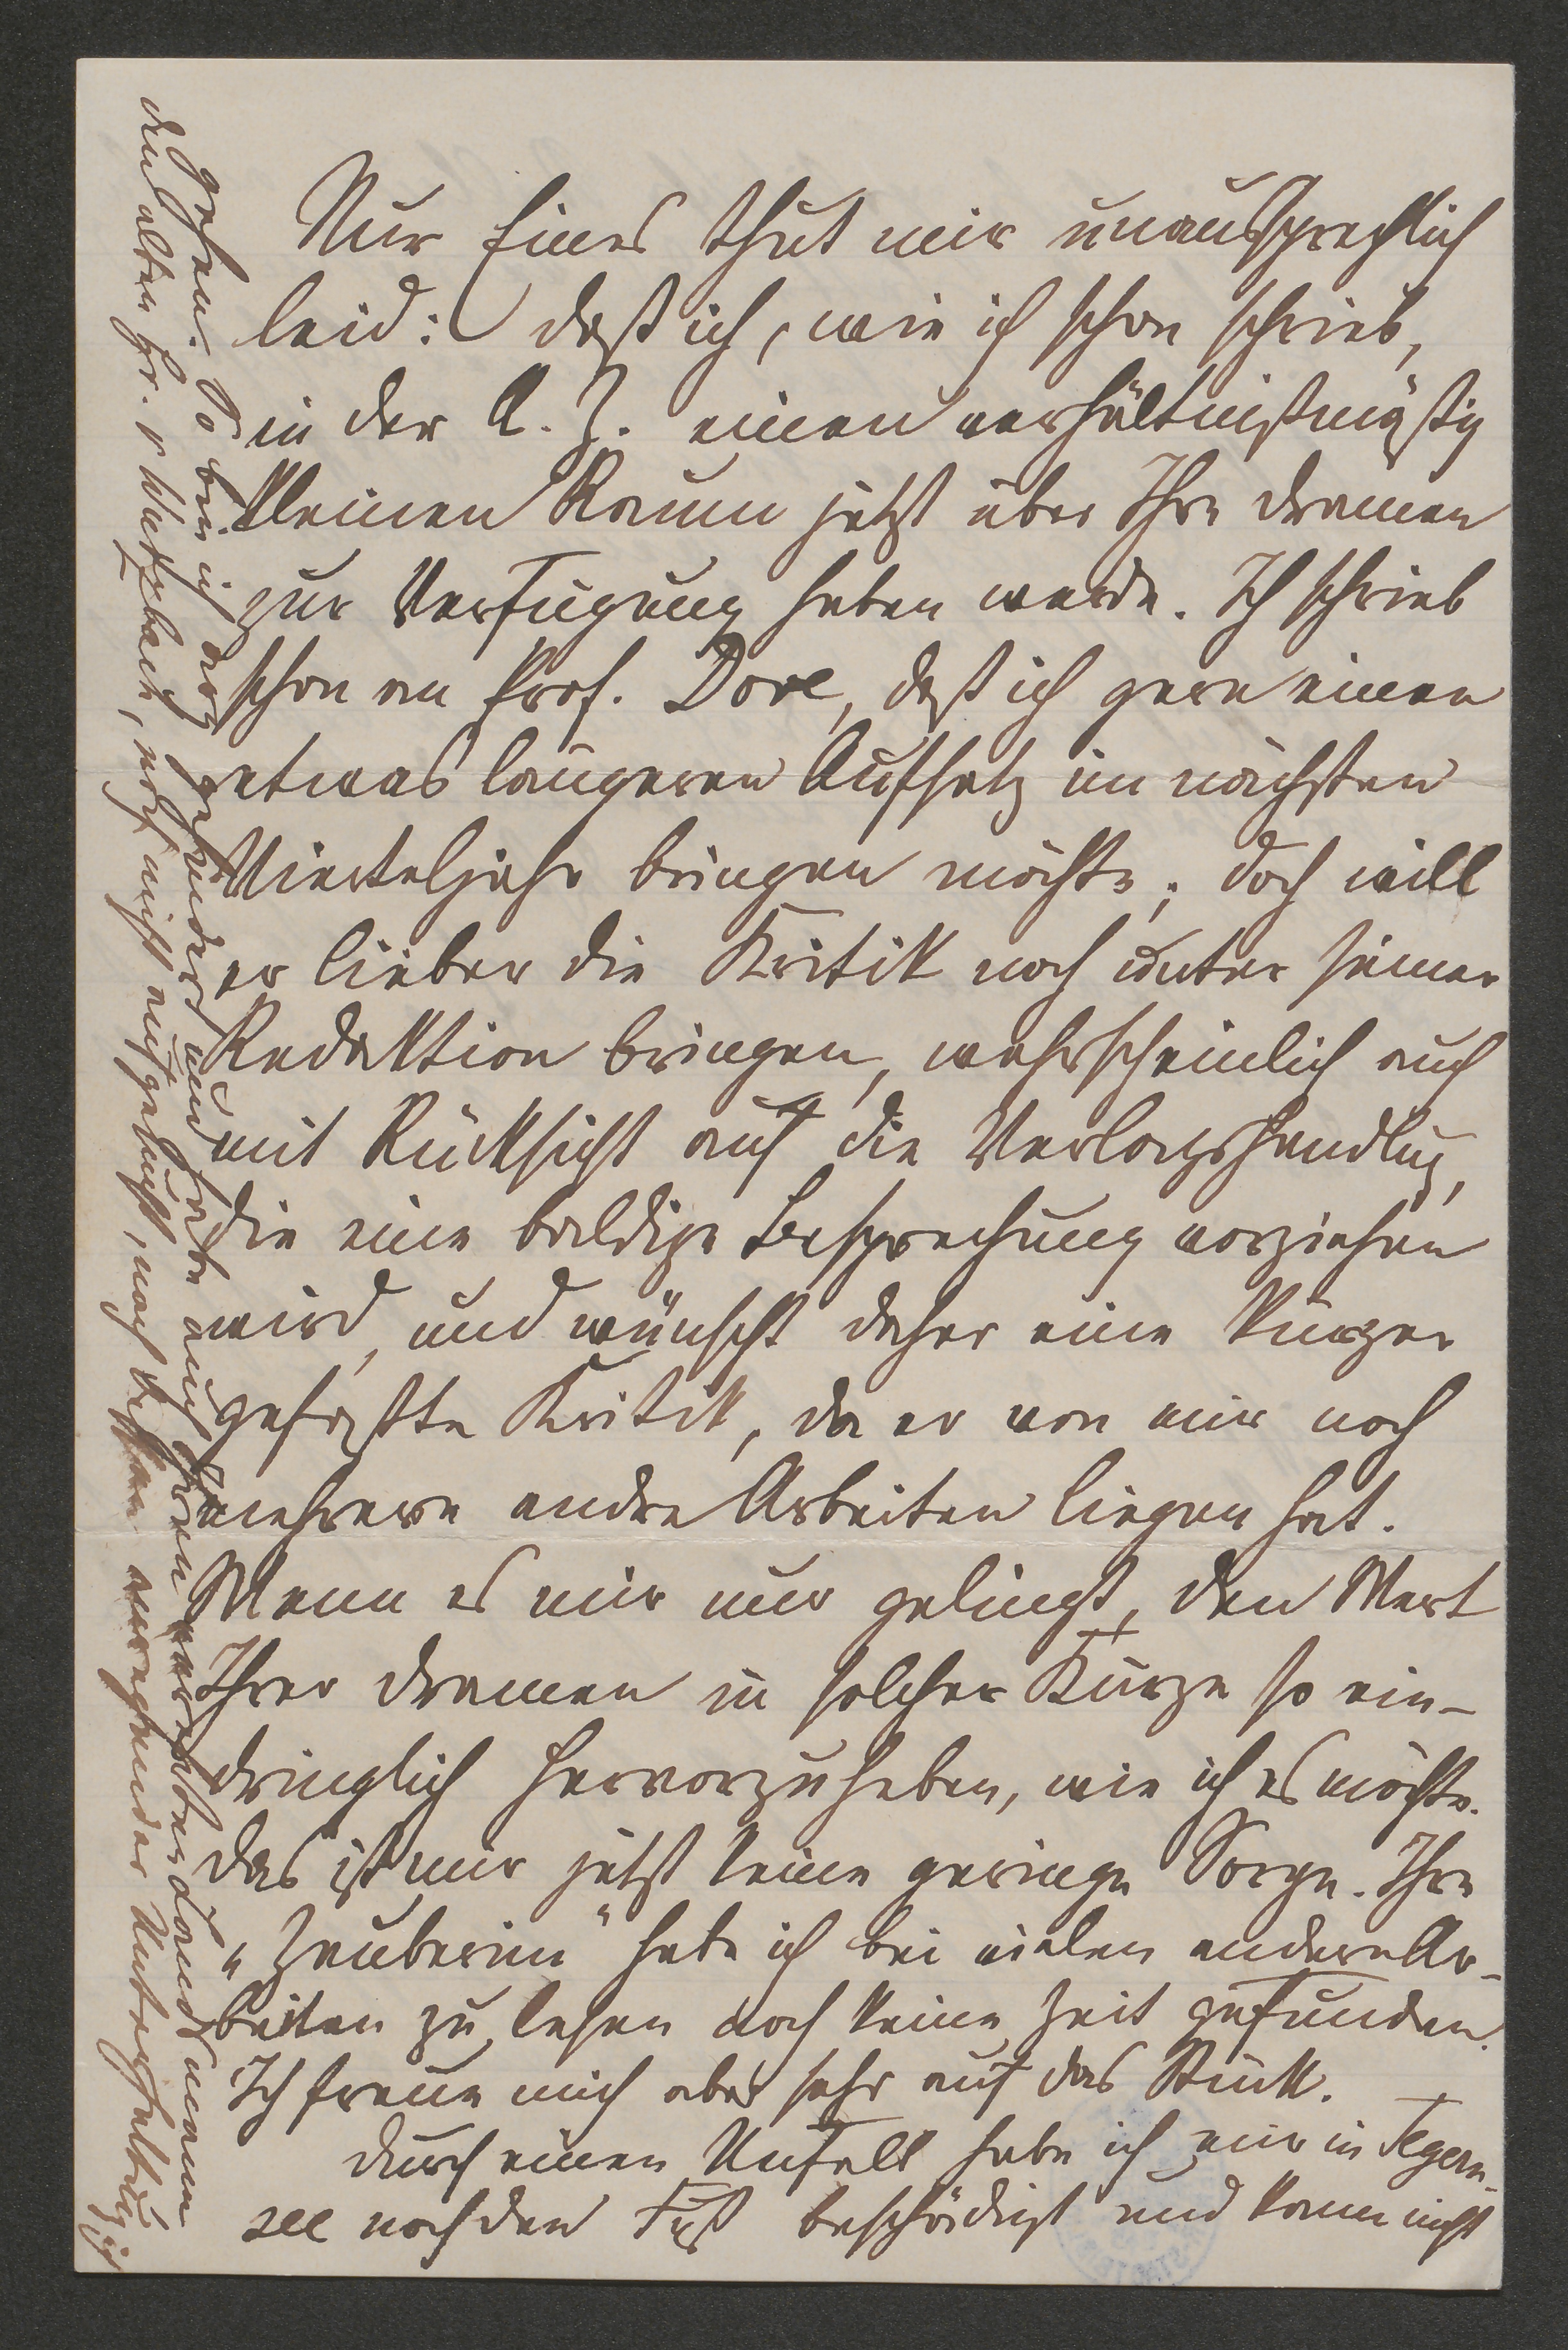 Nur Eines thut mir unaussprechlich
leid: daß ich, wie ich schon schrieb,
in der A. Z. einen verhältnißmäßig
kleinen Raum jetzt über Ihre Dramen
zur Verfügung haben werde. Ich schrieb
schon an Prof. Dove, daß ich gern einen
etwas längeren Aufsatz im nächsten
Vierteljahr bringen möchte; doch will
er lieber die Kritik noch unter seiner
Redaktion bringen, wahrscheinlich auch
mit Rücksicht auf die Verlagshandlug,
die eine baldige Besprechung vorziehen
wird, und wünscht daher eine kürzer
gefaßte Kritik, da er von mir noch
mehrere andre Arbeiten liegen hat.
Wenn es mir nur gelingt, den Wert
Ihrer Dramen in solcher Kürze so ein-
dringlich hervorzuheben, wie ich es möchte.
Das ist mir jetzt keine geringe Sorge. Ihre
„Zauberin" habe ich bei vielen andern Ar-
beiten zu lesen noch keine Zeit gefunden.
Ich freue mich aber sehr auf das Stück.
Durch einen Unfall habe ich mir in Tegern-
see noch den Fuß beschädigt und kann nicht
gehen. So bin ich noch gehindert und habe auch Ihren verehrten Landsmann
den alten Hr. v Wurzbach, noch nicht aufgesucht, nach dessen anregender Unterhaltung ich